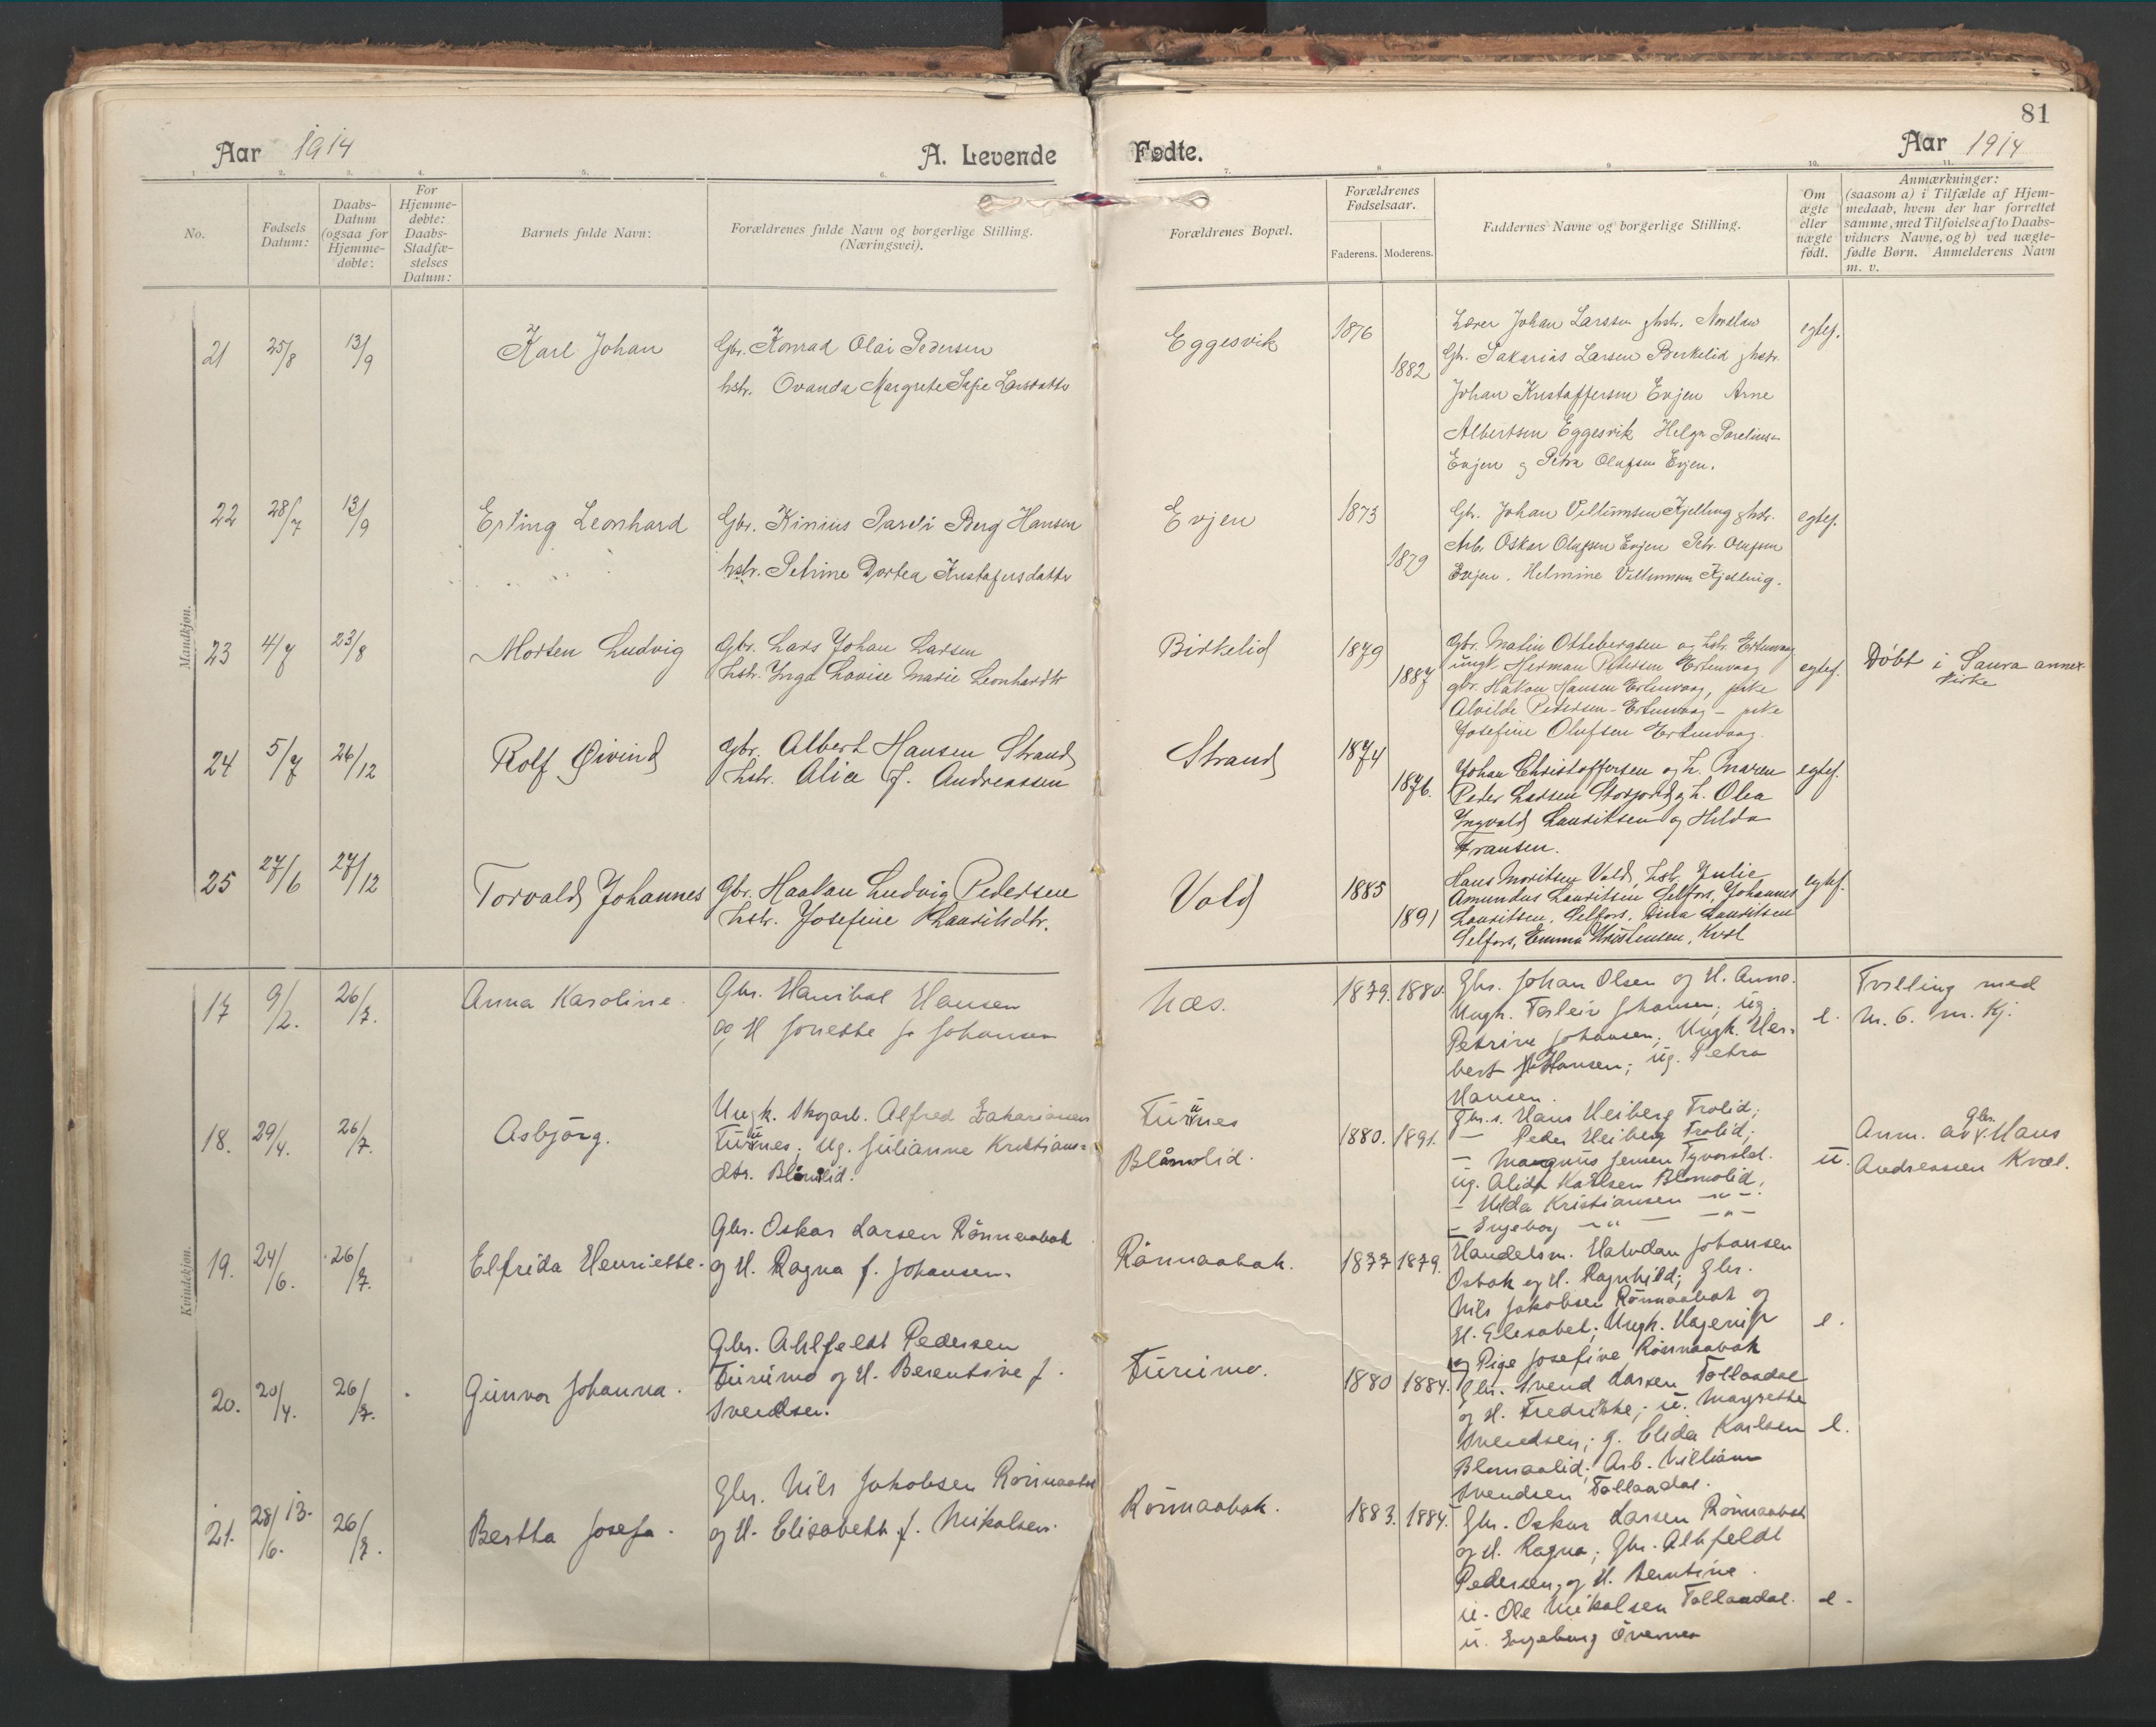 81
Aar 1914
A. Levende
Fødte.
Aar 1914
1.
2.
3.
4.
5.
6.
7.
8
9.
10.
11.
No.
Fødsels Datum:
Daabs-Datum (ogsaa for Hjemme-døbte:
For Hjemme-døbte: Daabs-Stadfæ-stelses Datum:
Barnets fulde Navn:
Forældrenes fulde Navn og borgerlige Stilling. (Næringsvei).
Forældrenes Bopæl.
Forældrenes Fødselsaar.
Faderens. Moderens.
Faddernes Navne og borgerlige Stilling.
Om ægte eller uægte født.
Anmærkninger:
(saasom a) i Tilfælde af Hjem-
medaab, hvem der har forrettet
samme, med Tilføielse af to Daabs-
vidners Navne, og b) ved uægte-
fødte Børn. Anmelderens Navn
m. v.
Mandkjøn.
21 25/8 13/9 Karl Johan
Gbr. Konrad Olai Pedersen
hstr. Ovanda Margrete Sofie Larsdatter
Eggesvik 1876 1882
Lærer Johan Larssen hstr.
Gbr. Sakarias Larsen Berkelid hstr.
Johan Kristoffersen Evjen Arne
Albertsen Eggesvik Helga
Evjen og Petra Olufsen Evjen.
egtef.
22 28/7 13/9 Erling Leonhard
Gbr. Kinius Pareli Berg Hansen
hstr. Petrine Dortea Kristofersdatter
Evjen 1873 1879
Gbr. Johan Villumsen Kjelling hstr.
Arb. Oskar Olufsen Evjen Petr. Olufsen
Evjen. Helmine Villumsen Kjelling.
egtef.
23 4/7 23/8 Morten Ludvig
Gbr. Lars Johan Larsen
hstr. Inga Lovise Marie Leonhardtr
Birkelid 1879 1887
Gbr. Matin Ottebergsen og hstr. Ertenvaag
ungk. Herman Petersen Ertenvaag
gbr. Hakon Hansen Ertenvaag, pike
Alvilde Petersen - Ertenvaag - pike
Josefine Olufsen Ertenvaag.
egtef.
Døbt i Saura annex
kirke
24 5/7 26/12 Rolf Øivind
Gbr. Albert Hansen Strand
hstr. Alice f. Andreassen
Strand 1874 1876.
Johan Christoffersen og h. Maren
Peder Larsen Storjord og h. Olea
Ingvald Lauritsen og Hilda
Fransen.
egtef.
25 27/6 27/12 Torvald Johannes
Gbr. Haakon Ludvig Pedersen
hstr. Josefine Lauritsdtr.
Vold 1885 1891
Hans Moritsen Vold, hstr. Julie
Amundus Lauritsen Selfors, Johannes
Lauritsen, Selfors. Dina Lauritsen
Selfors, Emma Kristensen,
egtef.
Kvindekjøn.
17 9/2. 26/7. Anna Karoline.
Gbr. Hanibal Hansen
og H Jonette f. Johansen
Næs. 1879. 1880.
Gbr. Johan Olsen og H. Anna.
Ungk. Torleiv Johansen; ug.
Petrine Johansen; Ungk. Her-
bert Hansen; ug. Petra
Hansen.
e.
Tvilling med
N. 6. m. Kj.
18. 29/4. 26/7. Asbjørg.
Ungk. Skogarb. Alfred Zakariassen
Furunes; Ug. Julianne Kristians-
dtr. Blåmolid.
Furunes
Blåmolid. 1880. 1891.
Gbr. s. Hans Heiberg Trolid;
— Peder Heiberg Trolid;
— Magnus Jensen
ug. Alida Karlsen Blåmolid,
— Hilda Kristiansen —"—
— Ingeborg —"— —"—
u.
Anm. av Gbr. Hans
Andreassen Kvæl.
19. 24/6. 26/7. Elfrida Henriette.
Gbr. Oskar Larsen Rönnaabak
og H. Ragna f. Johansen.
Rönnaabak. 1877 1879.
Handelsm. Halvdan Johansen
Osbak og H. Ragnhild; Gbr.
Nils Jakobsen Rönnaabak og
H. Elisabet; Ungk. Hagerup
og Pige Josefine Rönnaabak
e.
20. 20/4. 26/7. Gunvor Johanna.
Gbr. Ahlfeldt Pedersen
Furumo og H. Berentine f.
Svendsen.
Furumo. 1880 1884.
Gbr. Svend Larsen Tollaadal
og H. Fredrikke; u. Margrethe
Svendsen; g. Elida Karlsen
Blomaalid; Arb. Villiam
Svendsen Tollaadal.
e.
21. 28/6. 13. 26/7. Bertha Josefa.
Gbr. Nils Jakobsen Rönnaabak
og H. Elisabeth f. Nikolsen.
Rönnaabak. 1883. 1884.
Gbr. Oskar Larsen Rönnaabak
og H. Ragna; Gbr. Alhfeldt
Pedersen, og H. Berntine.
u. Ole Nikolsen Tollaadal.
u. Ingeborg Övernes
e.